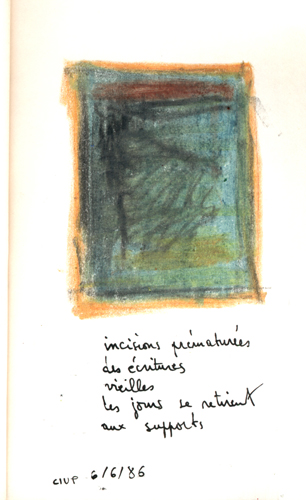 incisions prématurées
des écritures
vieilles
les jours se retirent
aux supports
CIUP 6/6/86